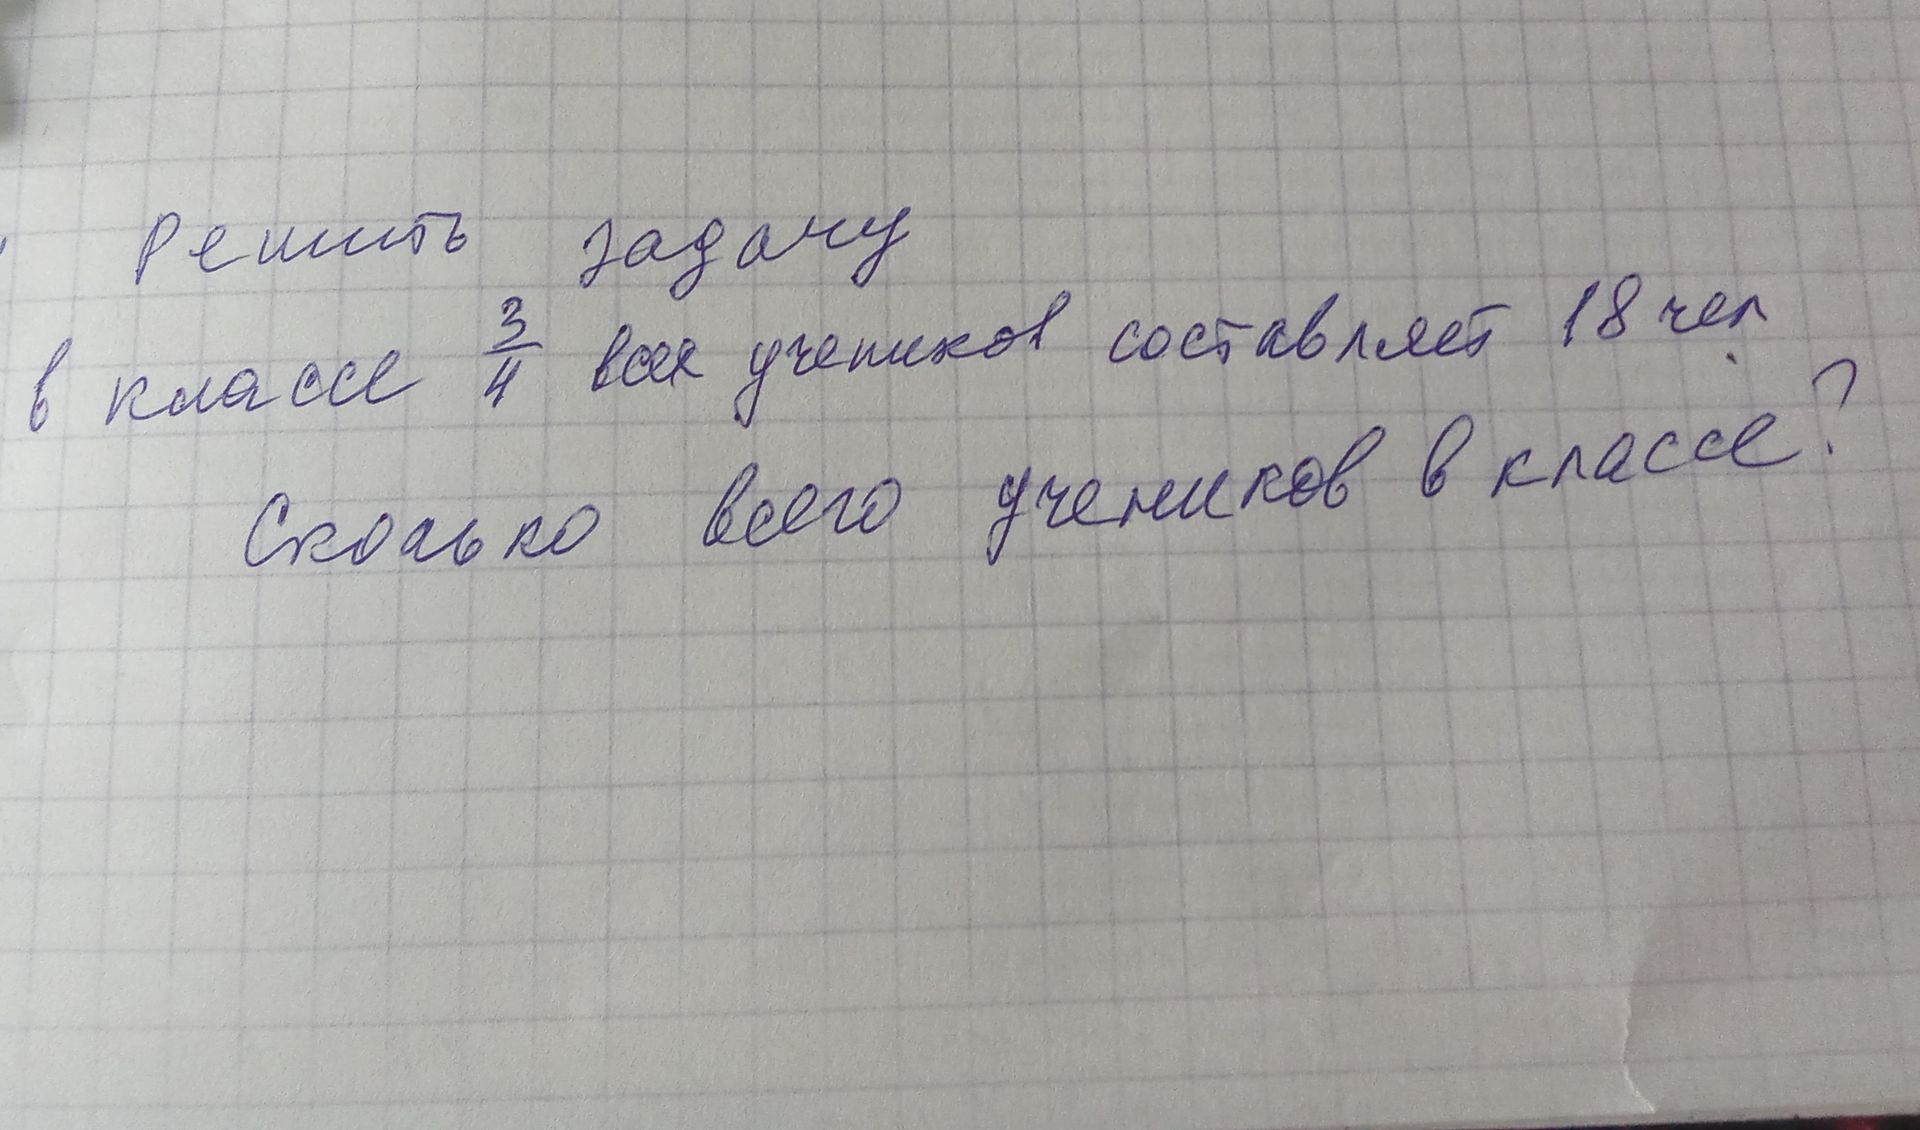 Решить задачу
в классе 3/4 всех учеников составляет 18 чел.
Сколько всего учеников в классе?